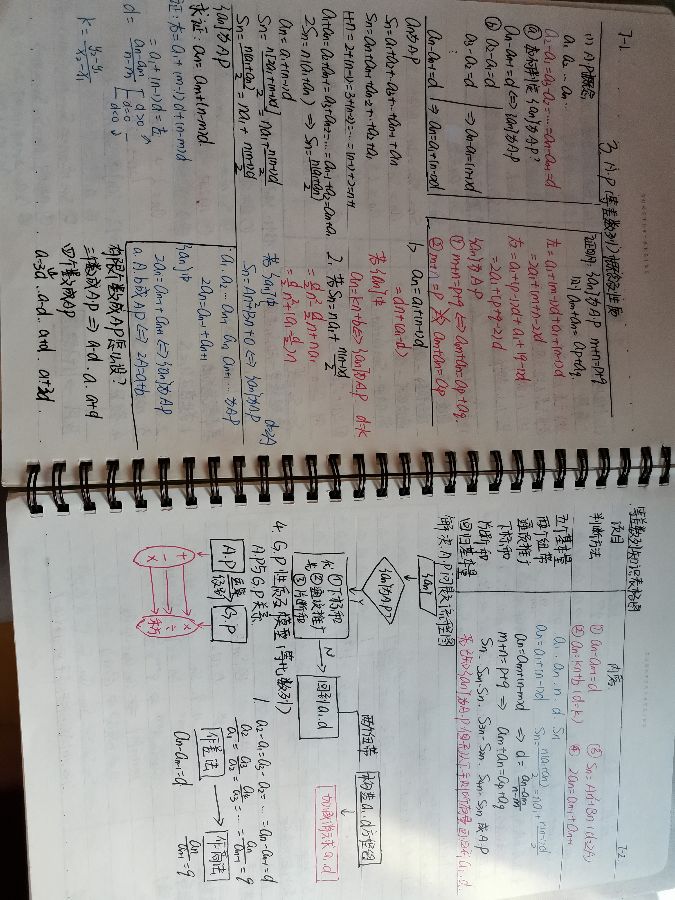 7-1
3. A.P(等差数列)概念及性质
(1) A.P概念
a₁ a₂ … aₙ …
a₂-a₁=a₃-a₂=…=aₙ-aₙ₋₁=d
aₙ-aₙ₋₁=d ⇔ {aₙ}为A.P
a₂-a₁=d
a₃-a₂=d
⋮
aₙ-aₙ₋₁=d
⇒ aₙ-a₁=(n-1)d
⇒ aₙ=a₁+(n-1)d
{aₙ}为A.P
Sₙ=a₁+a₂+…+aₙ₋₁+aₙ
Sₙ=aₙ+aₙ₋₁+…+a₂+a₁
a₁+aₙ=a₂+aₙ₋₁=…=aₙ+a₁
2Sₙ=n(a₁+aₙ) ⇒ Sₙ=n(a₁+aₙ)/2
aₙ=a₁+(n-1)d
Sₙ=n(a₁+aₙ)/2=na₁+n(n-1)d/2
{aₙ}为A.P
求证: aₙ=aₘ+(n-m)d
证: 右=a₁+(m-1)d+(n-m)d
=a₁+(n-1)d=左
d=(aₙ-aₘ)/(n-m)
d>0
d=0
d<0
k=(y₂-y₁)/(x₂-x₁)
证明: {aₙ}为A.P m+n=p+q
则 aₘ+aₙ=aₚ+a_q
左=a₁+(m-1)d+a₁+(n-1)d
=2a₁+(m+n-2)d
右=a₁+(p-1)d+a₁+(q-1)d
=2a₁+(p+q-2)d
{aₙ}为A.P
① m+n=p+q ⇔ aₘ+aₙ=aₚ+a_q
② m+n=p ⇏ aₘ+aₙ=aₚ
1. aₙ=a₁+(n-1)d
=dn+(a₁-d)
若{aₙ}中
aₙ=kn+b ⇔ {aₙ}为A.P d=k
2. 若Sₙ=na₁+n(n-1)d/2
=d/2n²-d/2n+na₁
=d/2n²+(a₁-d/2)n
若{aₙ}中
Sₙ=An²+Bn ⇔ {aₙ}为A.P d=2A
a₁ a₂ … aₙ₋₁ aₙ aₙ₊₁ … 为A.P
2aₙ=aₙ₋₁+aₙ₊₁
{aₙ}中
2aₙ=aₙ₋₁+aₙ₊₁ ⇔ {aₙ}为A.P
a. A. b成A.P ⇔ 2A=a+b
有限个数成A.P怎么设?
三个数成A.P ⇒ a-d . a . a+d
四个数成A.P
a-3d . a-d . a+d . a+3d
7-2
等差数列知识表格图
项目 内容
判断方法 ① aₙ-aₙ₋₁=d ③ Sₙ=An²+Bn (d=2A)
② aₙ=kn+b (d=k) ④ 2aₙ=aₙ₋₁+aₙ₊₁
五个基本量 a₁ aₙ n d Sₙ
两个纽带 aₙ=a₁+(n-1)d Sₙ=n(a₁+aₙ)/2=na₁+n(n-1)d/2
通项推广 aₙ=aₘ+(n-m)d ⇒ d=(aₙ-aₘ)/(n-m)
下标和 m+n=p+q ⇒ aₘ+aₙ=aₚ+a_q
片断和 Sₙ . S₂ₙ-Sₙ . S₃ₙ-S₂ₙ . S₄ₙ-S₃ₙ 成A.P
回归基本量
解决A.P问题流程图
{aₙ}
{aₙ}为A.P?
Y
① 下标和
② 通项推广
③ 片断和
N
回到a₁.d
两个纽带
构造a₁.d方程组
加减消元求a₁.d
4. G.P性质及模型(等比数列)
A.P与G.P关系
A.P
G.P
+ ×
- ÷
1. a₂-a₁=a₃-a₂=…=aₙ-aₙ₋₁=d
a₂/a₁=a₃/a₂=a₄/a₃=…=aₙ/aₙ₋₁=q
作差法
作商法
aₙ-aₙ₋₁=d
aₙ/aₙ₋₁=q